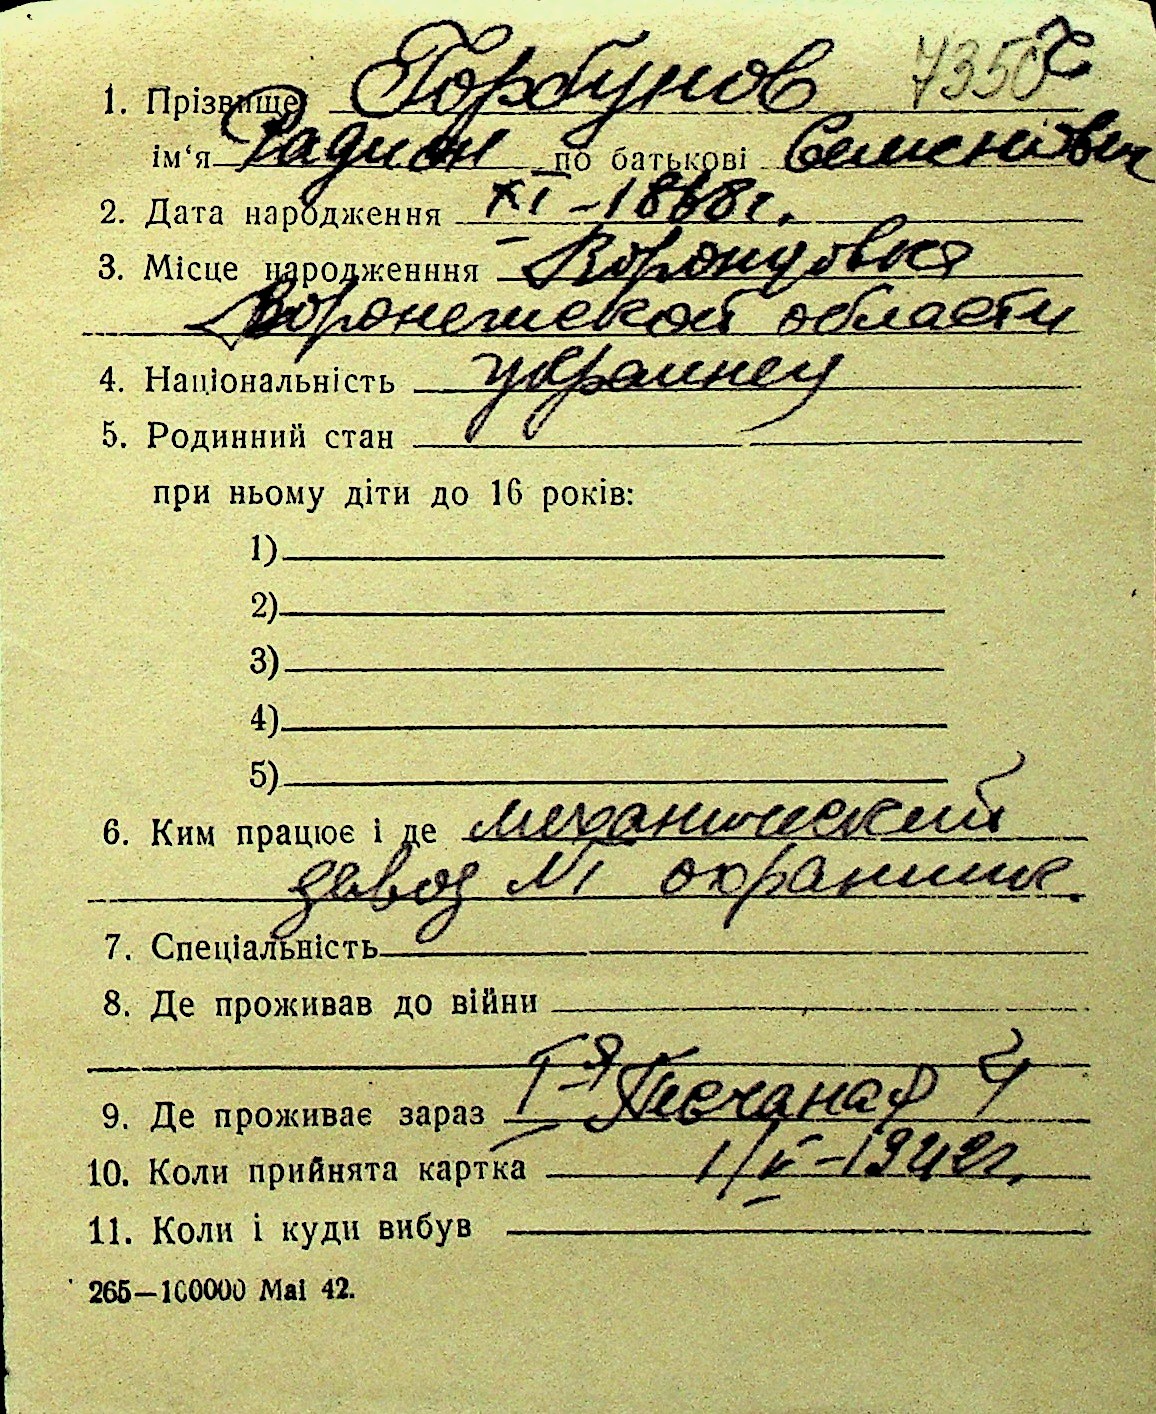 1. Прізвище Горбунов 7350
ім‘я Радион по батькові Семенович
2. Дата народження XI – 1868 г.
3. Місце народженння Воронцовка
Воронежской области
4. Національність украинец
5. Родинний стан
при ньому діти до 16 років:
1)
2)
3)
4)
5)
6. Ким працює і де механический
завод №1 охранник
7. Спеціальність
8. Де проживав до війни
9. Де проживає зараз I-я Песчаная 4
10. Коли прийнята картка 1/V – 1942 г.
11. Коли і куди вибув
265—100000 Mai 42.